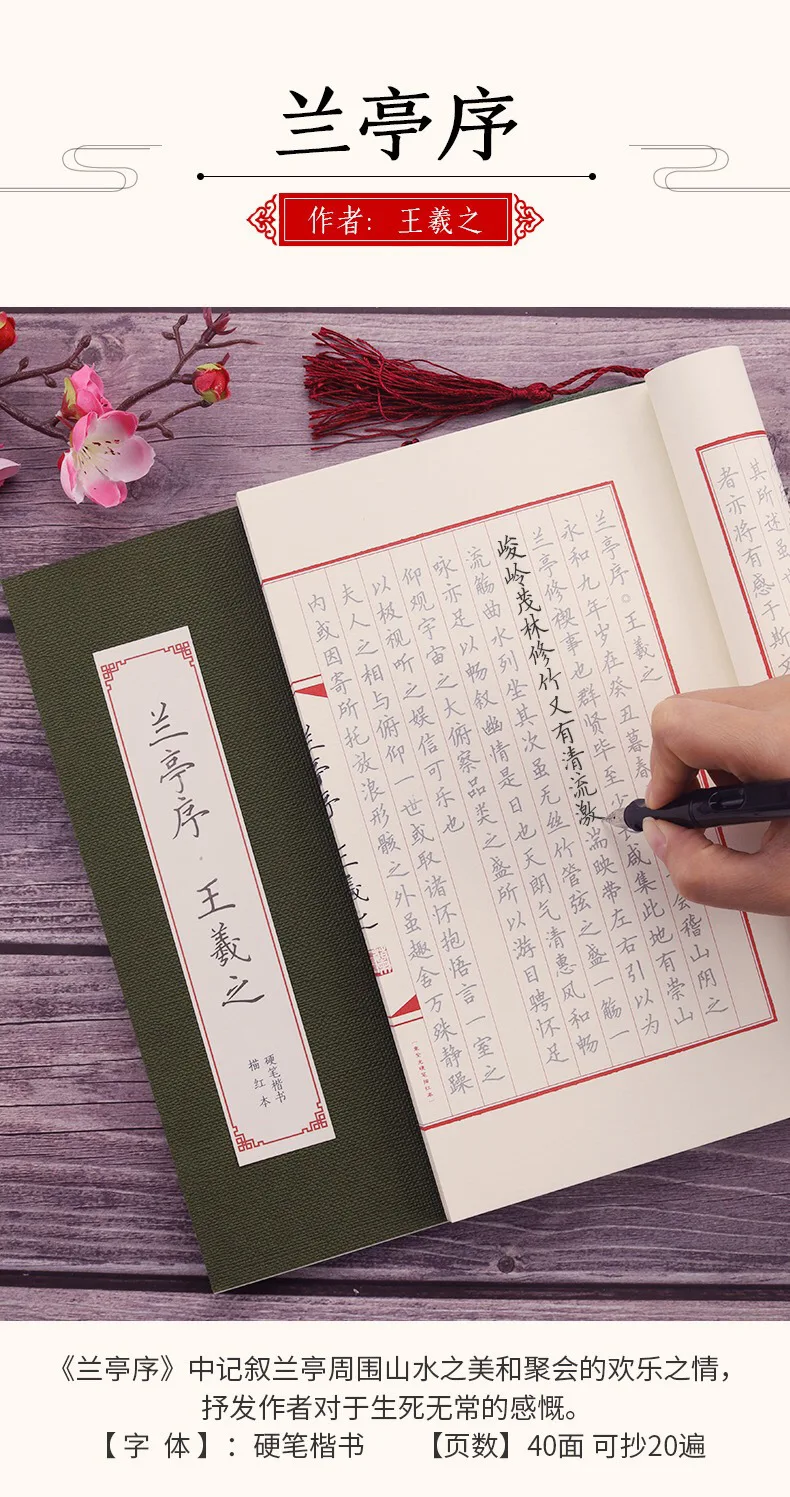 兰亭序
作者：王羲之
其所述虽世
者亦将有感于斯
兰亭序。王羲之
永和九年岁在癸丑暮春
会稽山阴之
兰亭修禊事也群贤毕至少长咸集此地有崇山
峻岭茂林修竹又有清流激湍映带左右引以为
流觞曲水列坐其次虽无丝竹管弦之盛一觞一
咏亦足以畅叙幽情是日也天朗气清惠风和畅
仰观宇宙之大俯察品类之盛所以游目骋怀足
以极视听之娱信可乐也
夫人之相与俯仰一世或取诸怀抱悟言一室之
内或因寄所托放浪形骸之外虽趣舍万殊静躁
兰亭序 王羲之
兰亭序·王羲之
硬笔楷书
描红本
《兰亭序》中记叙兰亭周围山水之美和聚会的欢乐之情，
抒发作者对于生死无常的感慨。
【字 体】：硬笔楷书 【页数】40面 可抄20遍